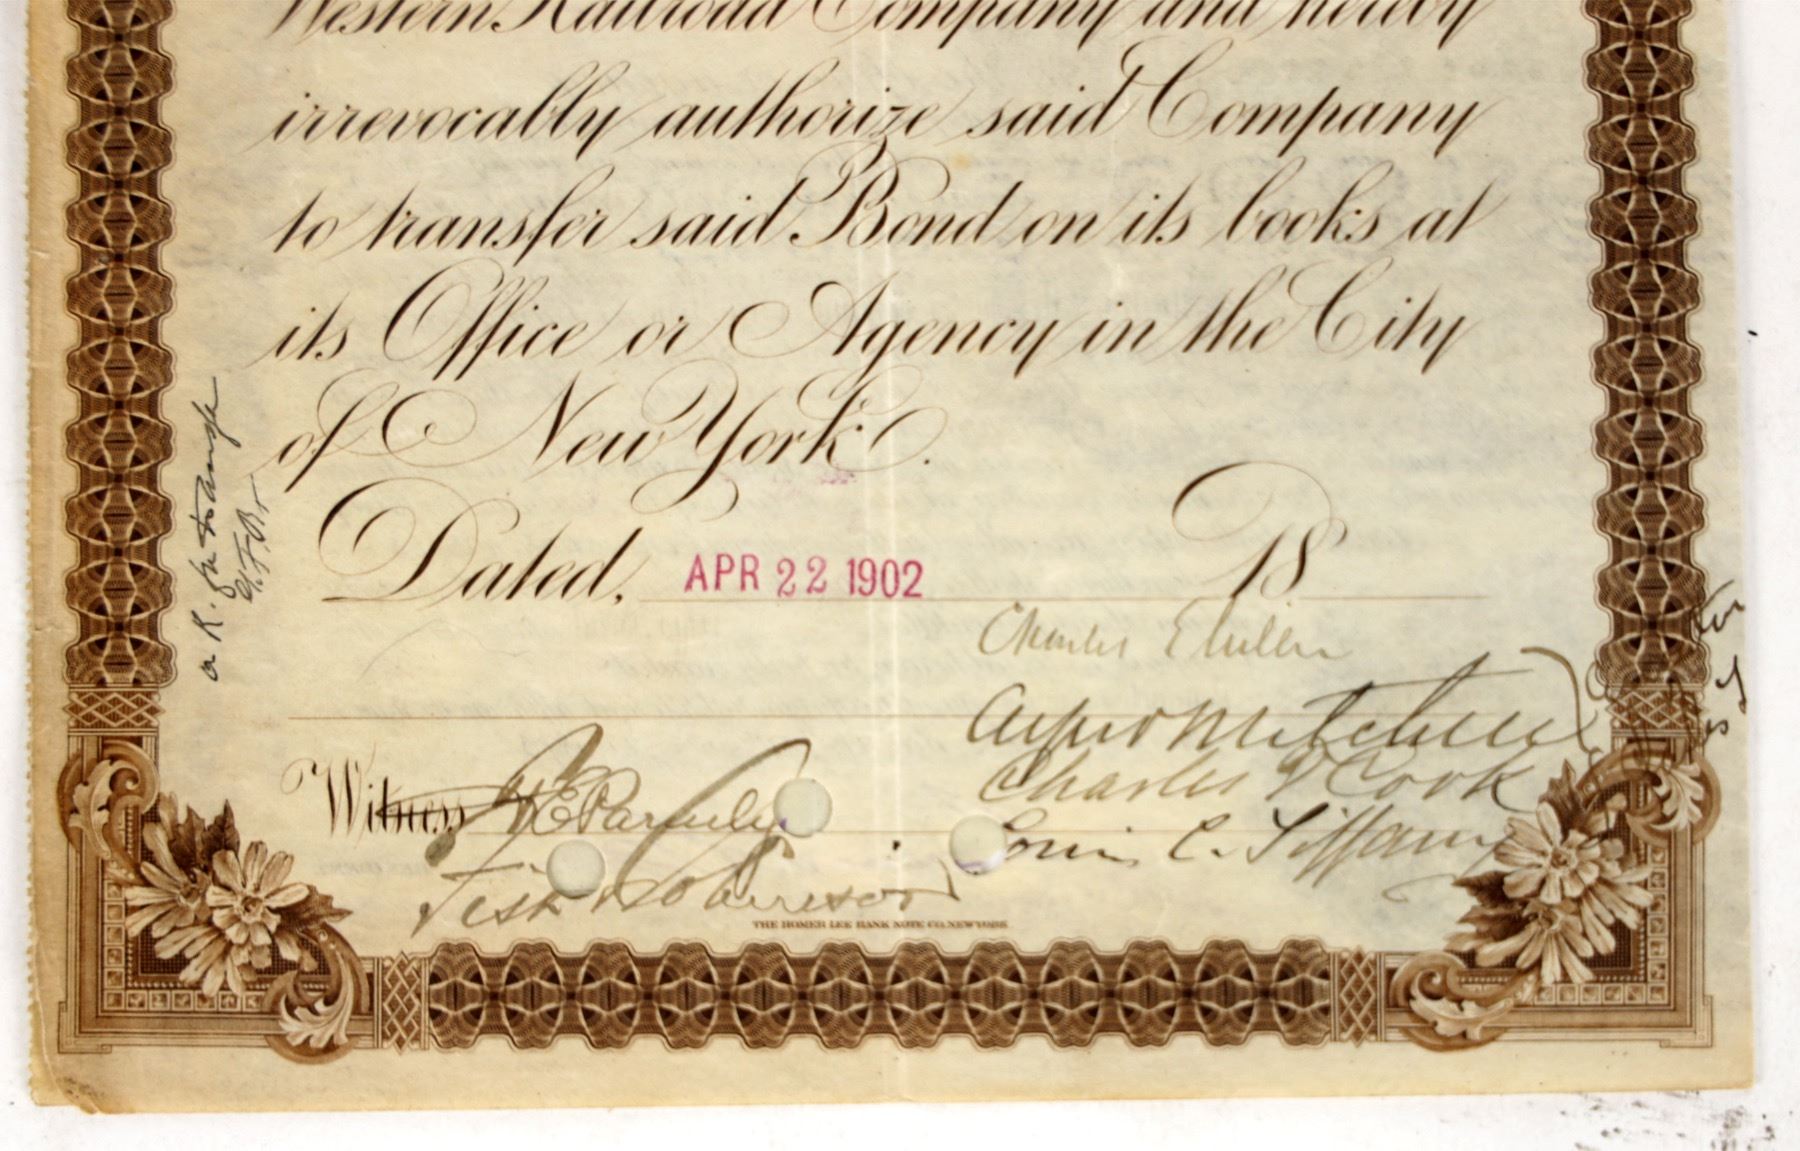 Western Railroad Company and hereby
irrevocably authorize said Company
to transfer said Bond on its books at
its Office or Agency in the City
of New York.
Dated, APR 22 1902 18
Charles
Alfred Mitchell
Charles Cook
Witness
Louis C. Tiffany
THE HOMER LEE BANK NOTE CO. NEW YORK.